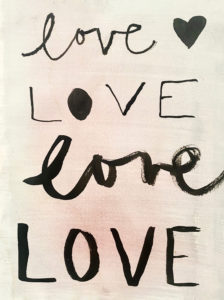 love
LOVE
love
LOVE